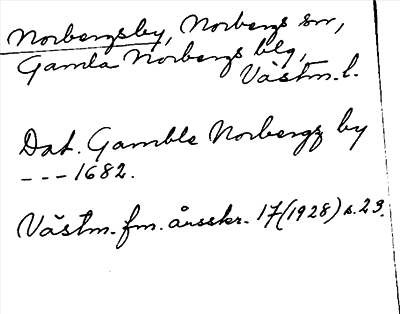 Norbergsby, Norbergs sn,
Gamla Norbergs blg,
Västm. l.
Dat. Gamble Norbergz by
--- 1682.
Västm. fm. årsskr. 17 (1928) s. 23.